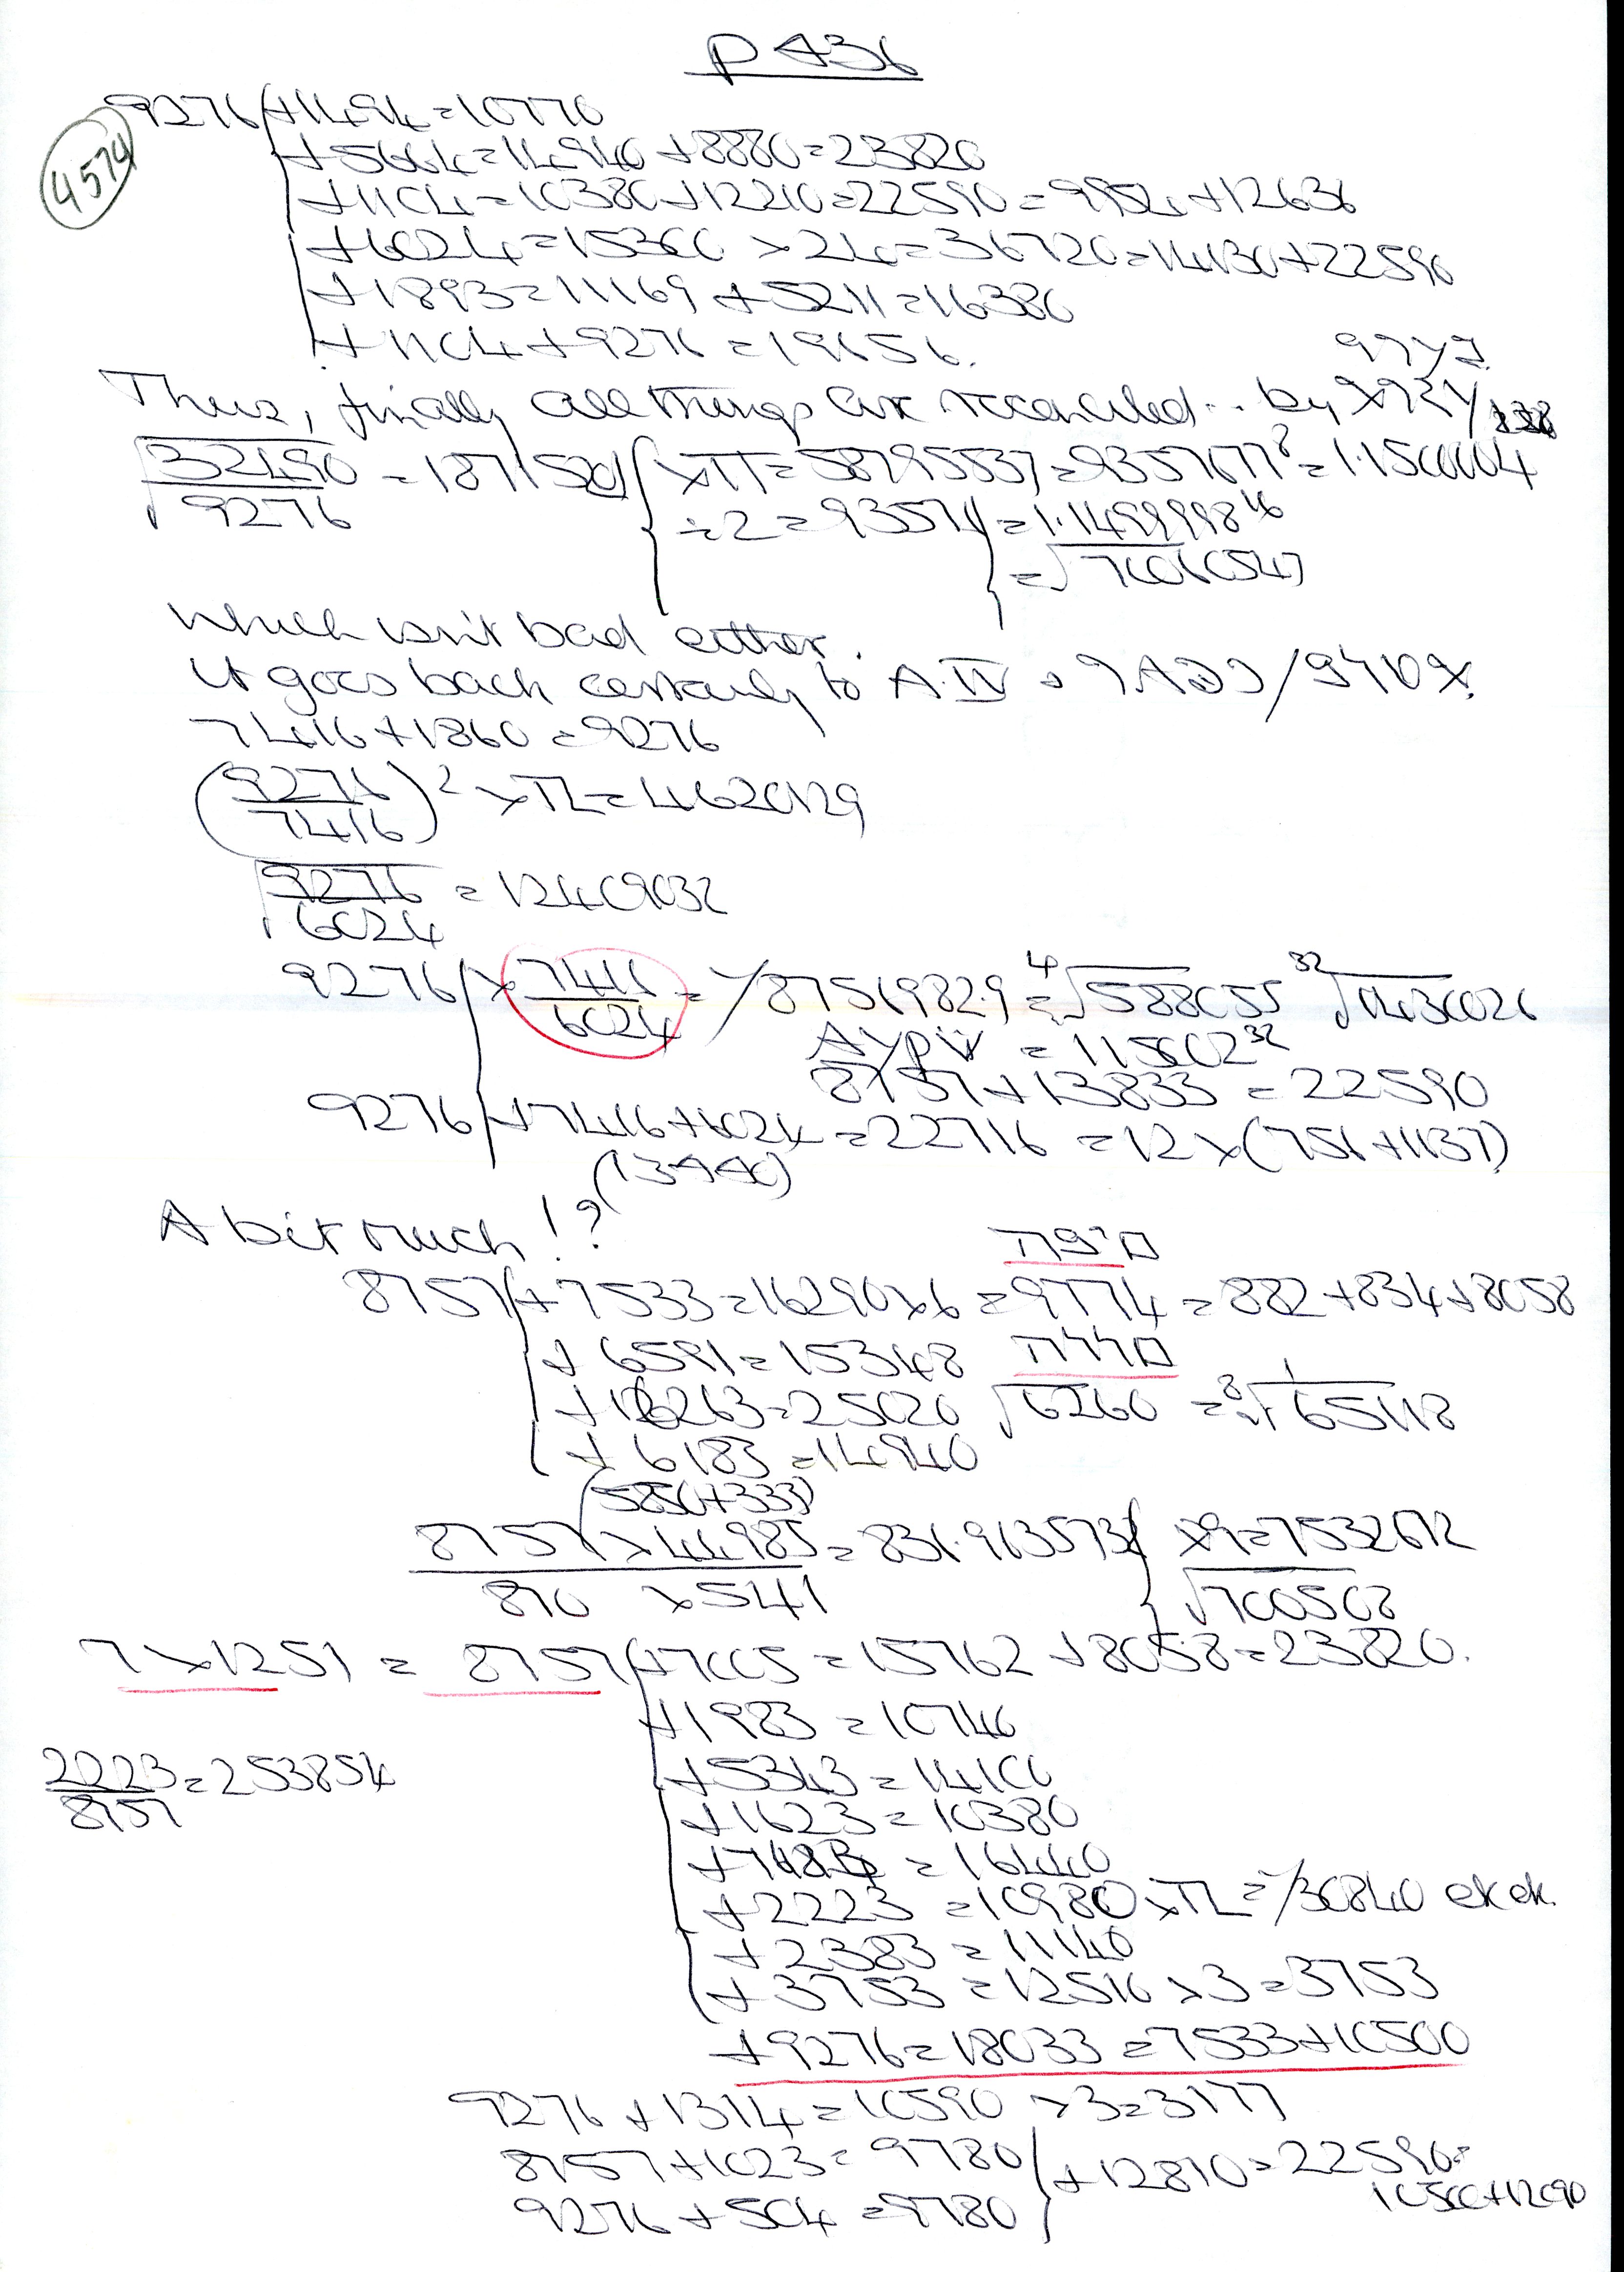 P 436
4574
9276 +1494=10770
+5664=14940+8880=23820
+1104=10380+12210=22590=9954+12636
+6024=15300 ×24=36720=14130+22590
+1893=11169+5211=16380
+1104+9276=19656.
Thus, finally all things are reconciled... by
√32490/9276 = 1871520 { ×π=58795537=9357677²=1.1500004
÷2=93576 } =1.1499998¹⁶
=√70060547
Which isn't bad either.
It goes back certainly to A.IV
7416+1860=9276
(9276/7416)² ×π=4620129
√9276/6024 = 12409032
9276 { × 7416/6024 = 1/8756982.9 = ⁴√588055 ³²√11430026
= 1156023²
8757+13833=22590
9276 +7416+6024=22716=12×(756+1137)
(13440)
A bit much!?
8757 +7533=16290×6=9774=882+834+8058
+6591=15348
+16263=25020 √6260 = ⁸√1/65118
+6183=14940
(5850+333)
8757×44985/870 ×541 = 836.963573 { ×9=7532672
√700508
7×1251 = 8757 +7005=15762+8058=23820.
+1983=10740
2223/8757=253854
+5343=14100
+1623=10380
+7683=16440
+2223=10980×π=1/30840 ek ek.
+2383=11140
+3753=12510×3=3753
+9276=18033=7533+10500
9276+1314=10590 ×3=3177
8757+1023=9780
+12810=22590=
10500+12090
9276+504=9780